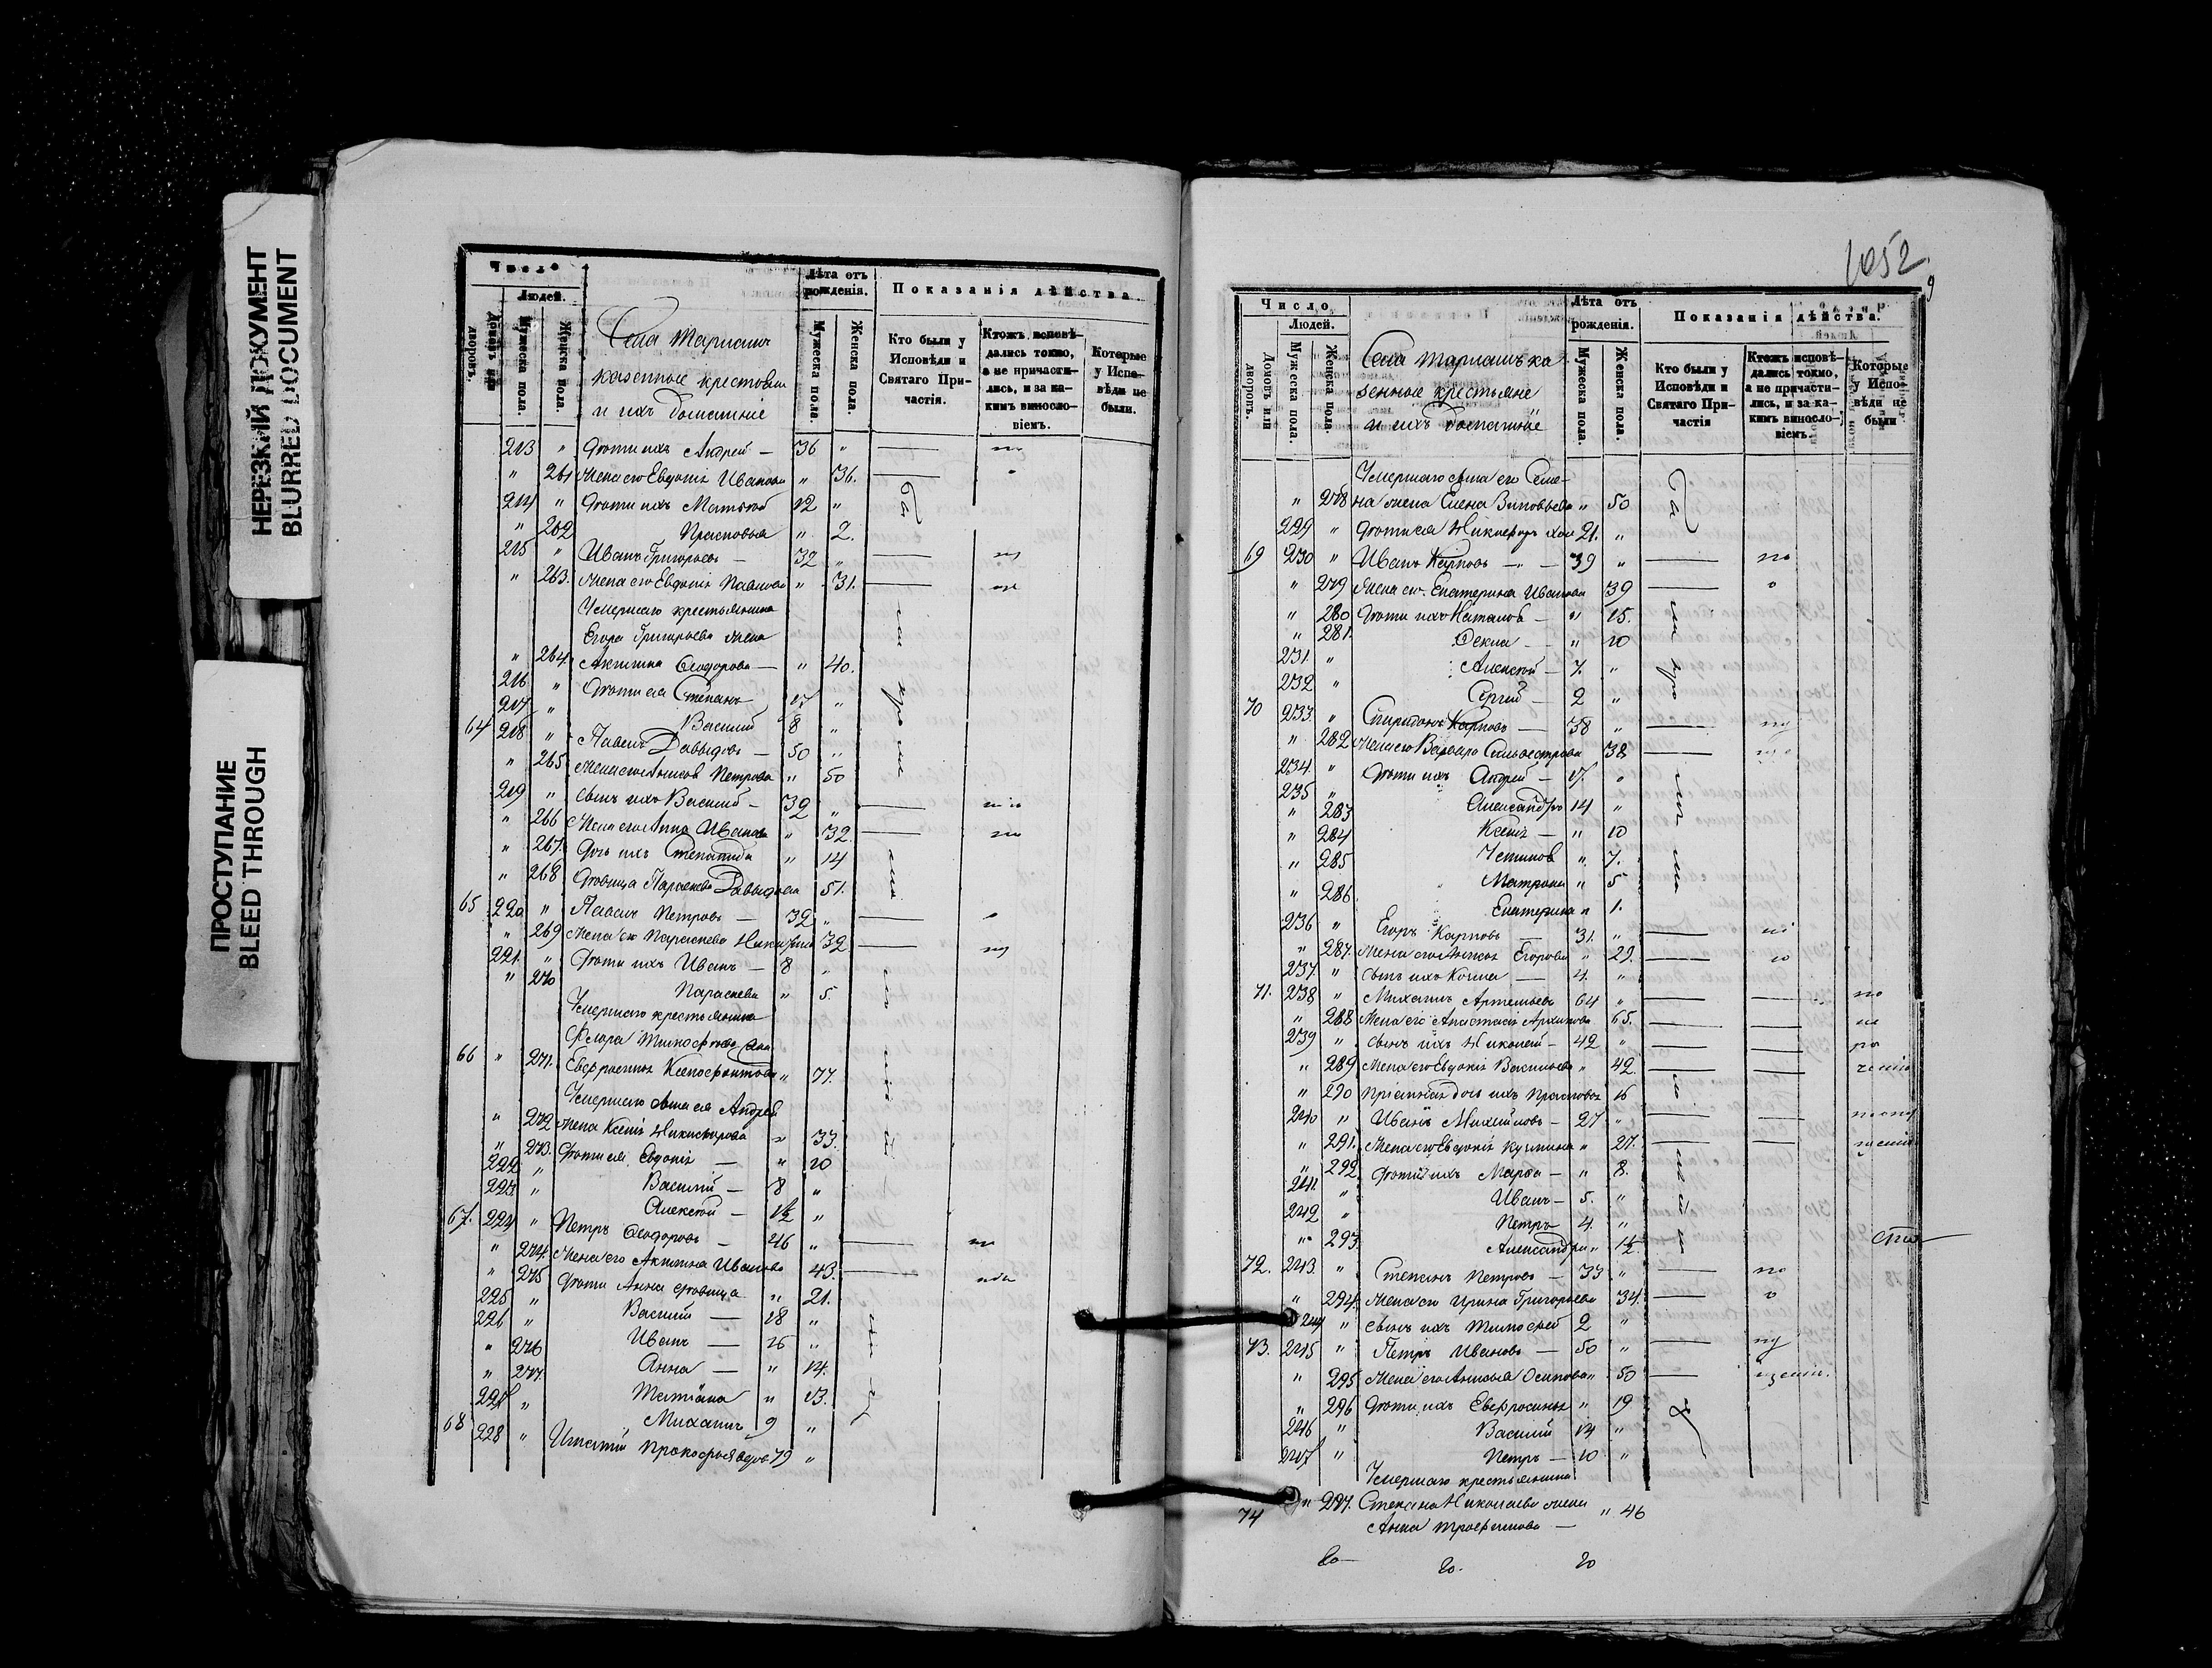 НЕРЕЗКИЙ ДОКУМЕНТ
BLURRED DOCUMENT
ПРОСТУПАНИЕ
BLEED THROUGH
Число
Людей.
Лѣта отъ рожденія.
Показанія дѣйства
Домовъ или дворовъ.
Мужеска пола.
Женска пола.
Села Тарлашъ
казенные крестьяне
и ихъ домашніе
Мужеска пола.
Женска пола.
Кто были у Исповѣди и Святаго Причастія.
Ктожъ исповѣдались токмо, а не причастились, и за каким винословіемъ.
Которые у Исповѣди не были.
213 " Дѣти ихъ Андрей — 36 "
" 261 Жена его Евдокія Иванова " 36.
214 " Дѣти ихъ Матѳей 12 "
" 262 Прасковья " 2.
215 " Иванъ Григорьевъ — 32 "
" 263. Жена его Евдокія Павлова " 31.
Умершаго крестьянина
Егора Григорьева жена
" 264. Акилина Ѳеодорова — " 40.
216 " Дѣти ея Степанъ 17 "
217 " Василій 8 "
64 218 " Павелъ Давыдовъ — 50 "
" 265 Жена его Анисья Петрова " 50
219 " сынъ ихъ Василій — 32 "
" 266 Жена его Анна Иванова " 32.
" 267. Дочь ихъ Степанида " 14
" 268 Дѣвица Параскева Давыдова 51.
65 220 " Павелъ Петровъ — 32 "
" 269 Жена его Параскева 32
221. " Дѣти ихъ Иванъ — 8 "
" 270 Параскева " 5.
Умершаго крестьянина
66 " 271. Евфросинья Ксенофонтова " 77.
Умершаго сына ея Андрея
" 272 Жена Ксенія Никифорова " 33.
" 273. Дѣти ея Евдокія — " 10
222 " Василій — 8 "
223. " Алексѣй — 1½ "
67. 224 " Петръ Ѳеодоровъ — 46 "
" 274. Жена его Акилина Иванова 43.
" 275 Дѣти Анна дѣвица " 21.
225 " Василій — 18 "
226 " Иванъ — 16 "
" 276 Анна — " 14.
" 277. Татіана " 13.
227 " Михаилъ 9 "
68 228 " Игнатій Прокофьевъ вдовъ 79 "
1052.
9
Число
Людей.
Лѣта отъ рожденія.
Показанія дѣйства.
Домовъ или дворовъ.
Мужеска пола.
Женска пола.
Села Тарлашъ ка
зенные крестьяне
и ихъ домашніе
Мужеска пола.
Женска пола.
Кто были у Исповѣди и Святаго Причастія
Ктожъ исповѣдались токмо, а не причастились, и за каким винословіемъ.
Которые у Исповѣди не были
Умершаго сына его Семе-
" 278 на жена Елена Зиновьева " 50
229 " Дѣти ея Никифоръ 21. "
69 230 " Иванъ Карповъ — 39 "
" 279 Жена его Екатерина Иванова 39
" 280 Дѣти ихъ Наталья — " 15.
" 281. Ѳекла — " 10
231. " Алексѣй — 7. "
232 " Сергій — 2 "
70 233. " Спиридонъ Карповъ — 38 "
" 282 Жена его Варвара Сильвестрова 38
234. " Дѣти ихъ Андрей — 17. "
235 " Александръ 14 "
" 283 Ксенія — " 10
" 284 Устинья " 7.
" 285 Матрона " 5
" 286. Екатерина " 1.
236 " Егоръ Карповъ — 31. "
" 287. Жена его Анисья Егорова " 29.
237. " сынъ ихъ Козма — 4. "
71. 238 " Михаилъ Артемьевъ 64 "
" 288 Жена его Анастасія Архипова 65.
239 " сынъ ихъ Николай — 42 "
" 289 Жена его Евдокія Васильева " 42.
" 290 Пріемная дочь ихъ Прасковья 16
240 " Иванъ Михайловъ — 27 "
" 291. Жена его Евдокія Кузмина " 27.
" 292 Дѣти ихъ Марѳа — " 8.
241. " Иванъ — 5. "
242 " Петръ 4. "
" 293. Александра " 1½
72. 243. " Степанъ Петровъ — 33 "
" 294. Жена его Ирина Григорьева 34.
244 " сынъ ихъ Тимофей 2 "
73. 245 " Петръ Ивановъ — 50 "
" 295 Жена его Анисья Осипова " 50
" 296 Дѣти ихъ Евфросинья " 19
246 " Василій 14 "
247 " Петръ — 10 "
Умершаго крестьянина
74 " 297. Степана Николаева жена " 46
Анна Трофимова —
20 20. 20